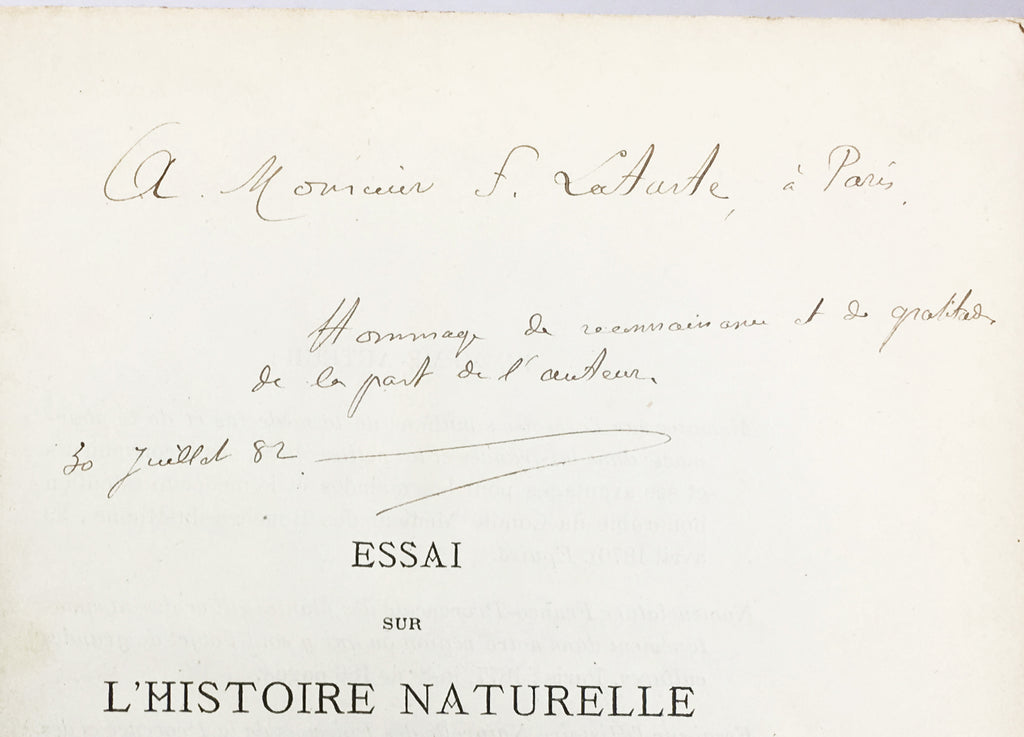 A Monsieur F. Lataste, à Paris.
Hommage de reconnaissance et de gratitude
de la part de l'auteur.
30 Juillet 82
ESSAI
SUR
L'HISTOIRE NATURELLE